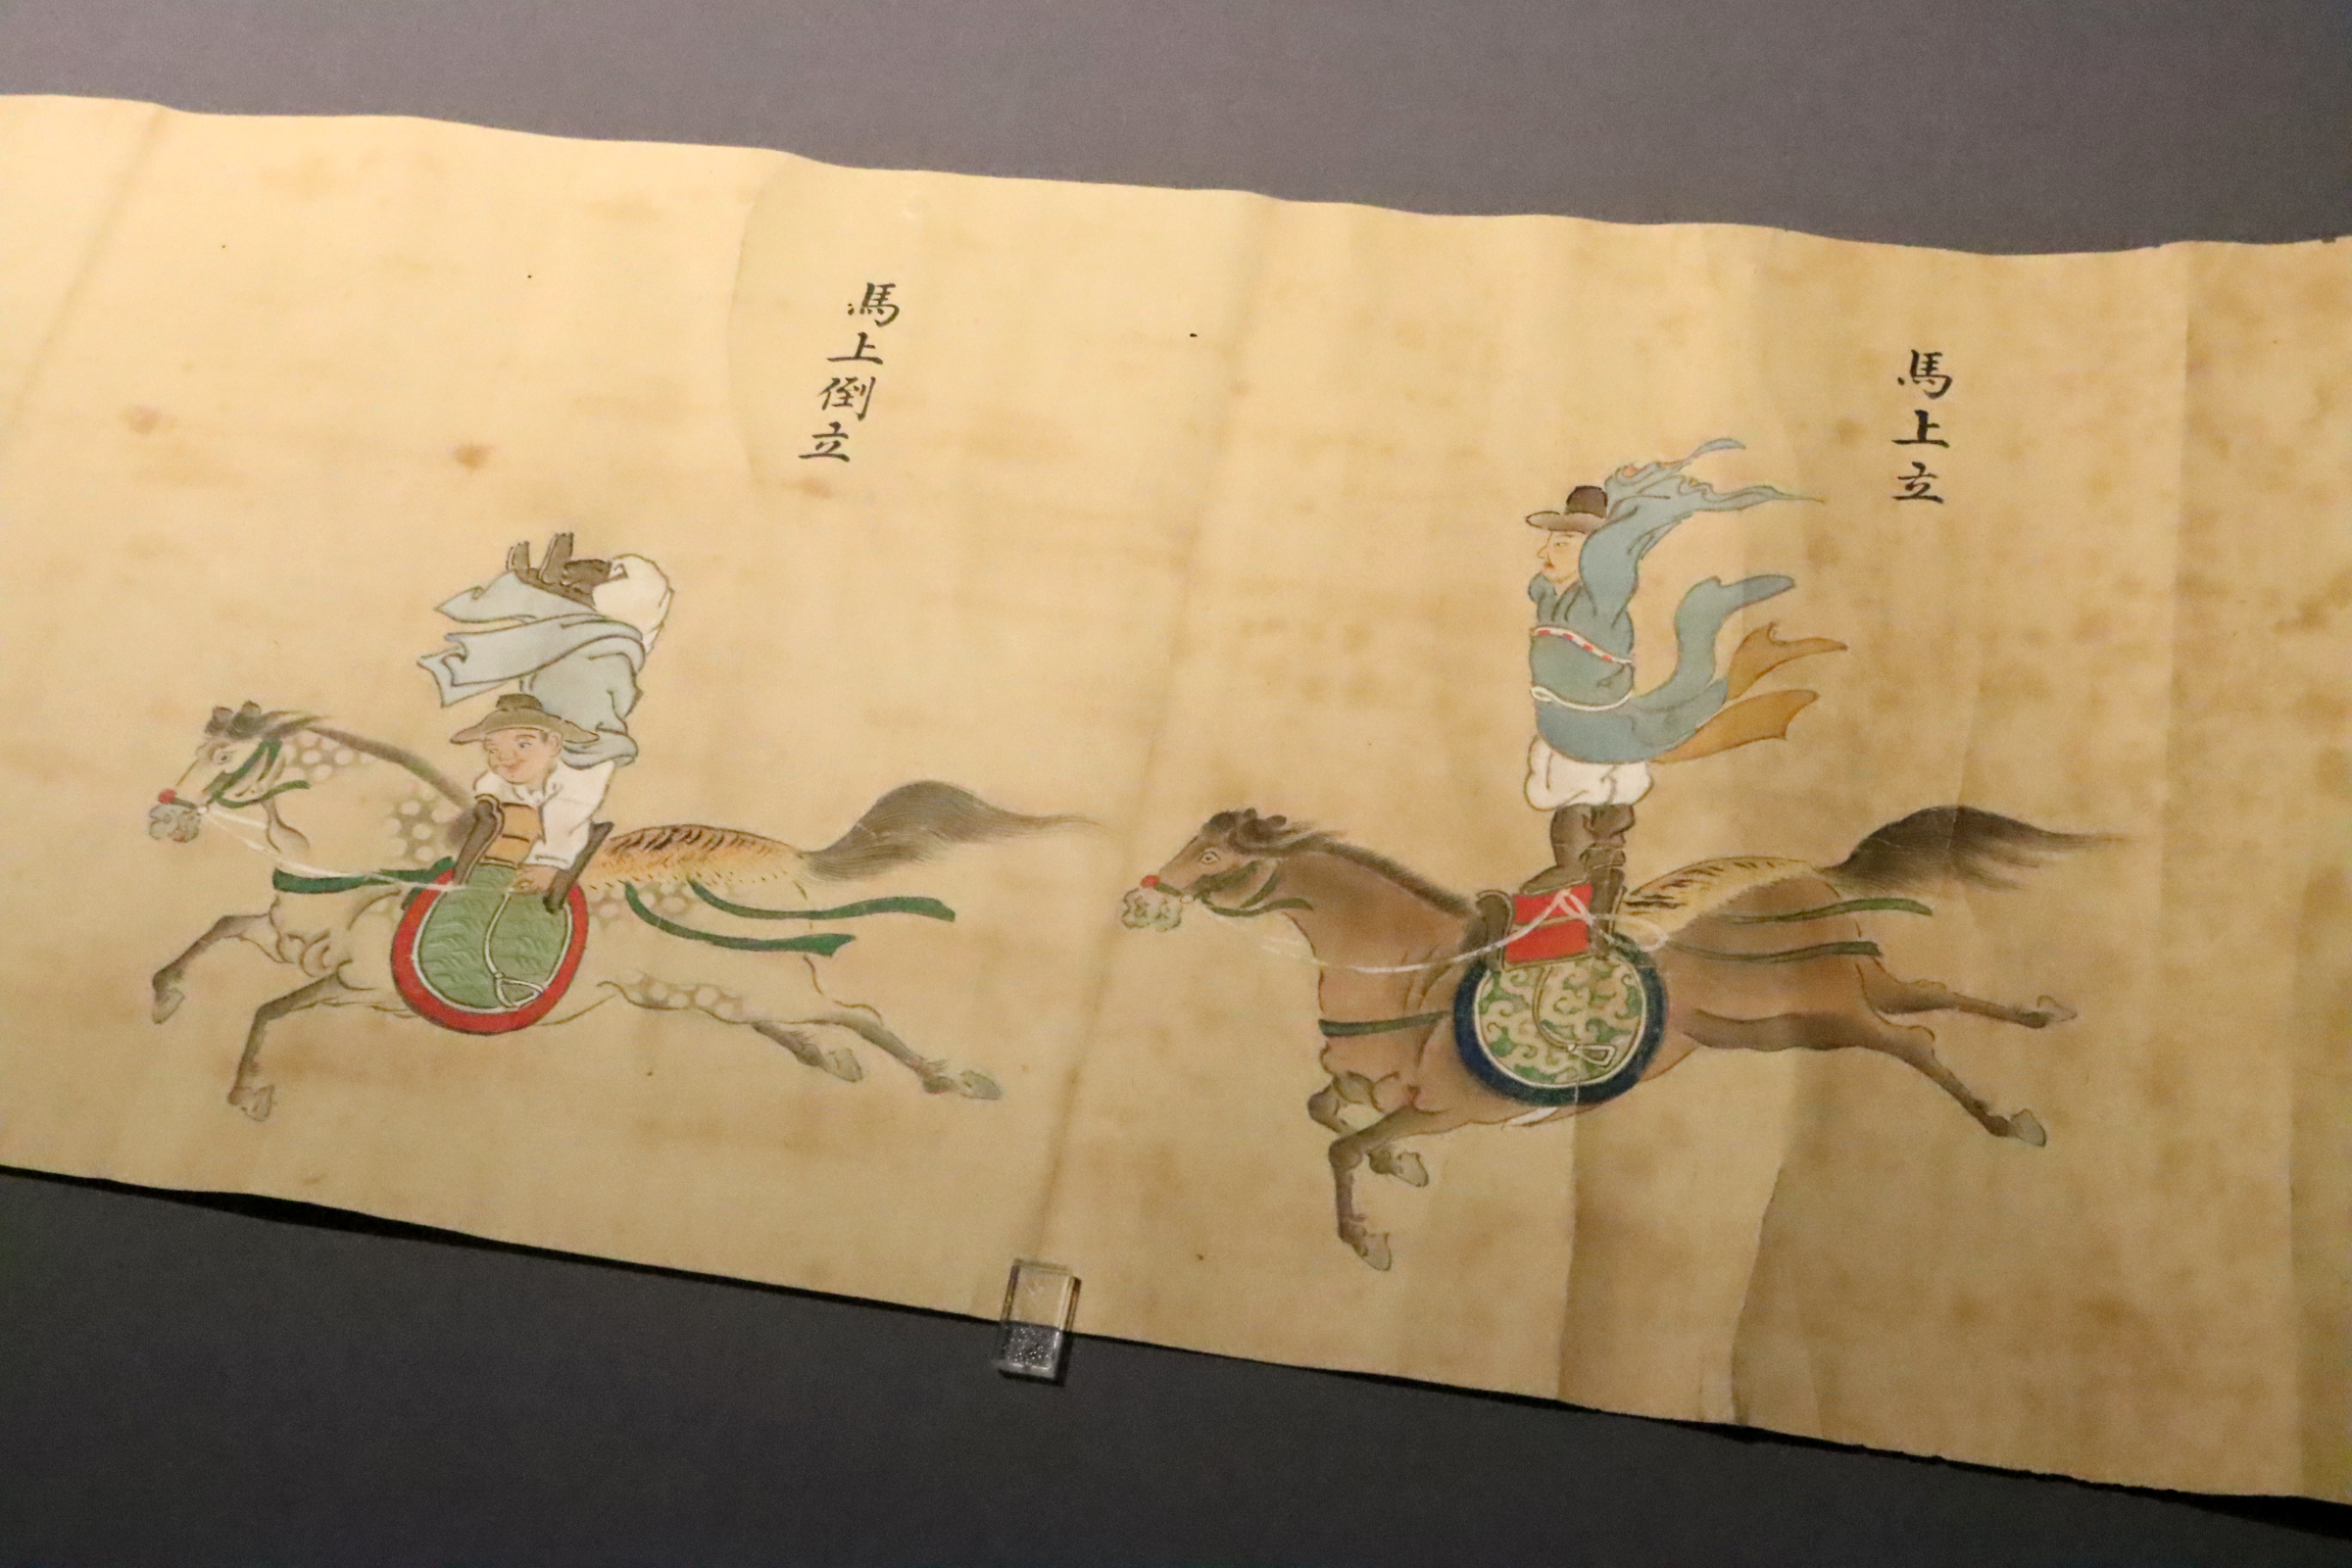 馬上立
馬上倒立